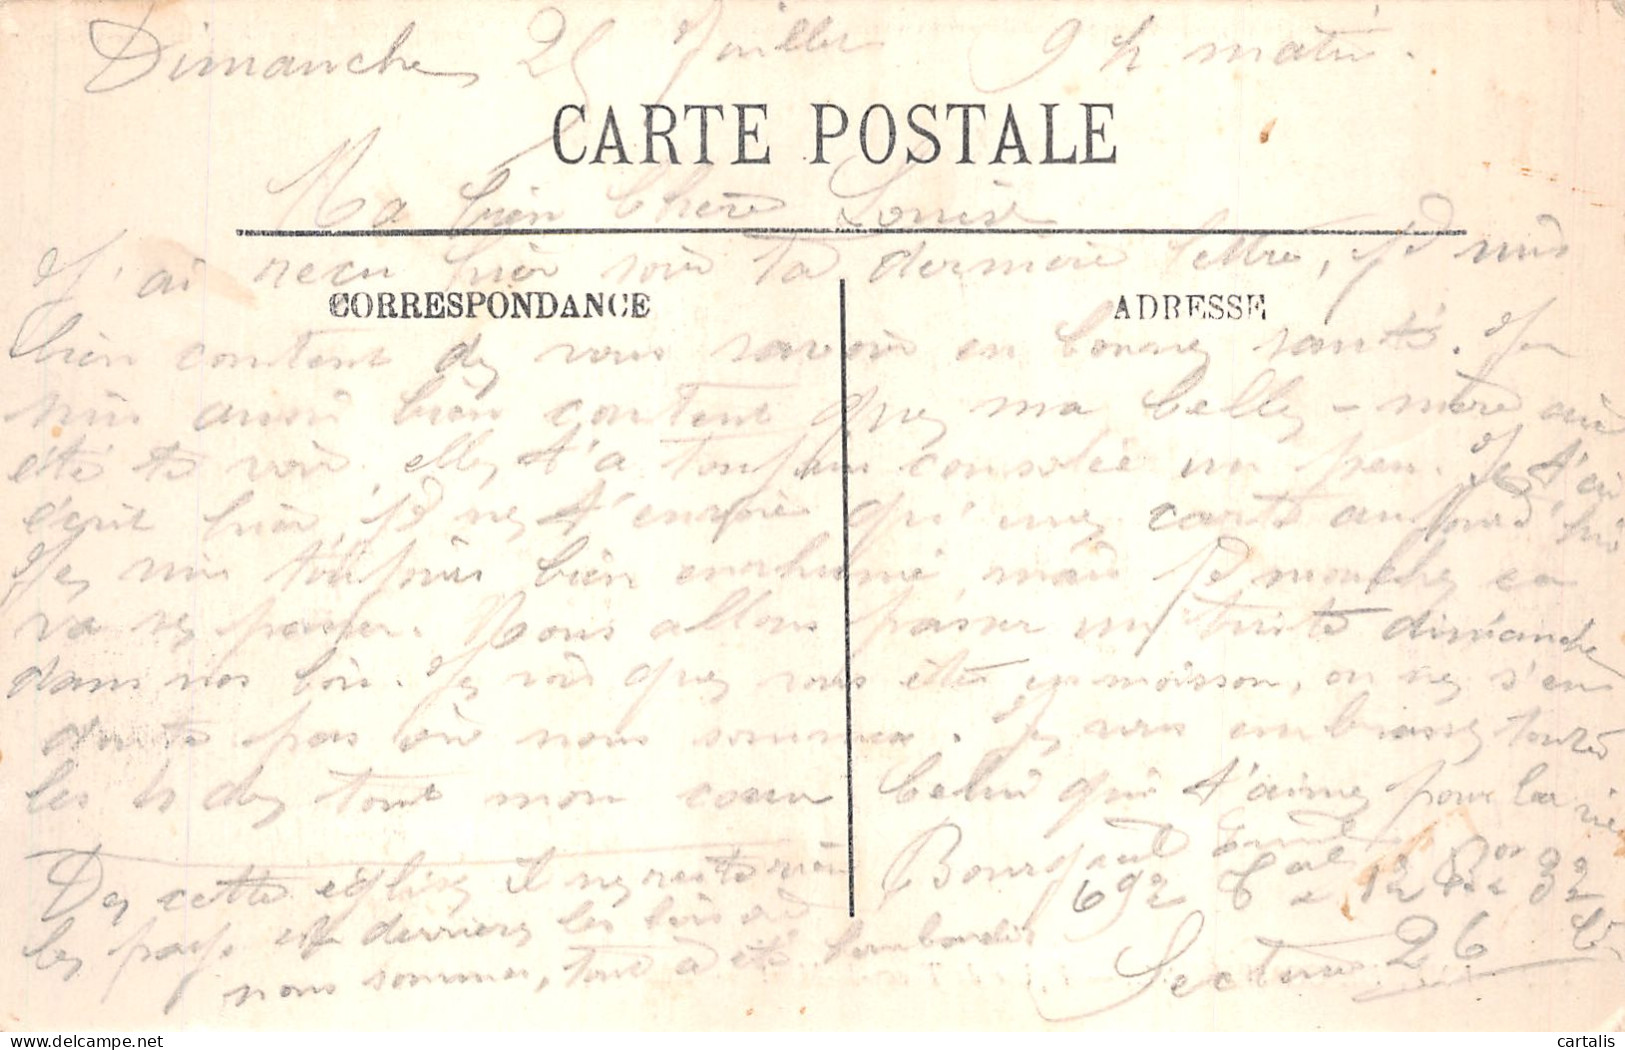 Dimanche 25 Juillet 9 h matin.
CARTE POSTALE
Ma bien Chère Louise
J'ai reçu hier soir ta dernière lettre, je suis
CORRESPONDANCE
ADRESSE
bien content de vous savoir en bonne santé. Je
suis aussi bien content que ma belle-mère aie
été te voir elle t'a toujours consolée un peu. Je t'ai
écrit hier, je ne t'envoie qu'une carte aujourd'hui
Je suis toujours bien enrhumé mais je mouche ça
va se passer. Nous allons passer un triste dimanche
dans nos bois. Je vois que vous êtes en moisson, on ne s'en
doute pas où nous sommes. Je vous embrasse toutes
les 4 de tout mon cœur Celui qui t'aime pour la vie
Bourgault Emile
De cette église il ne reste rien
692 Cal 12 32
le pays est derrière les bois où
Secteur 26
nous sommes, tout a été bombardé
cartalis